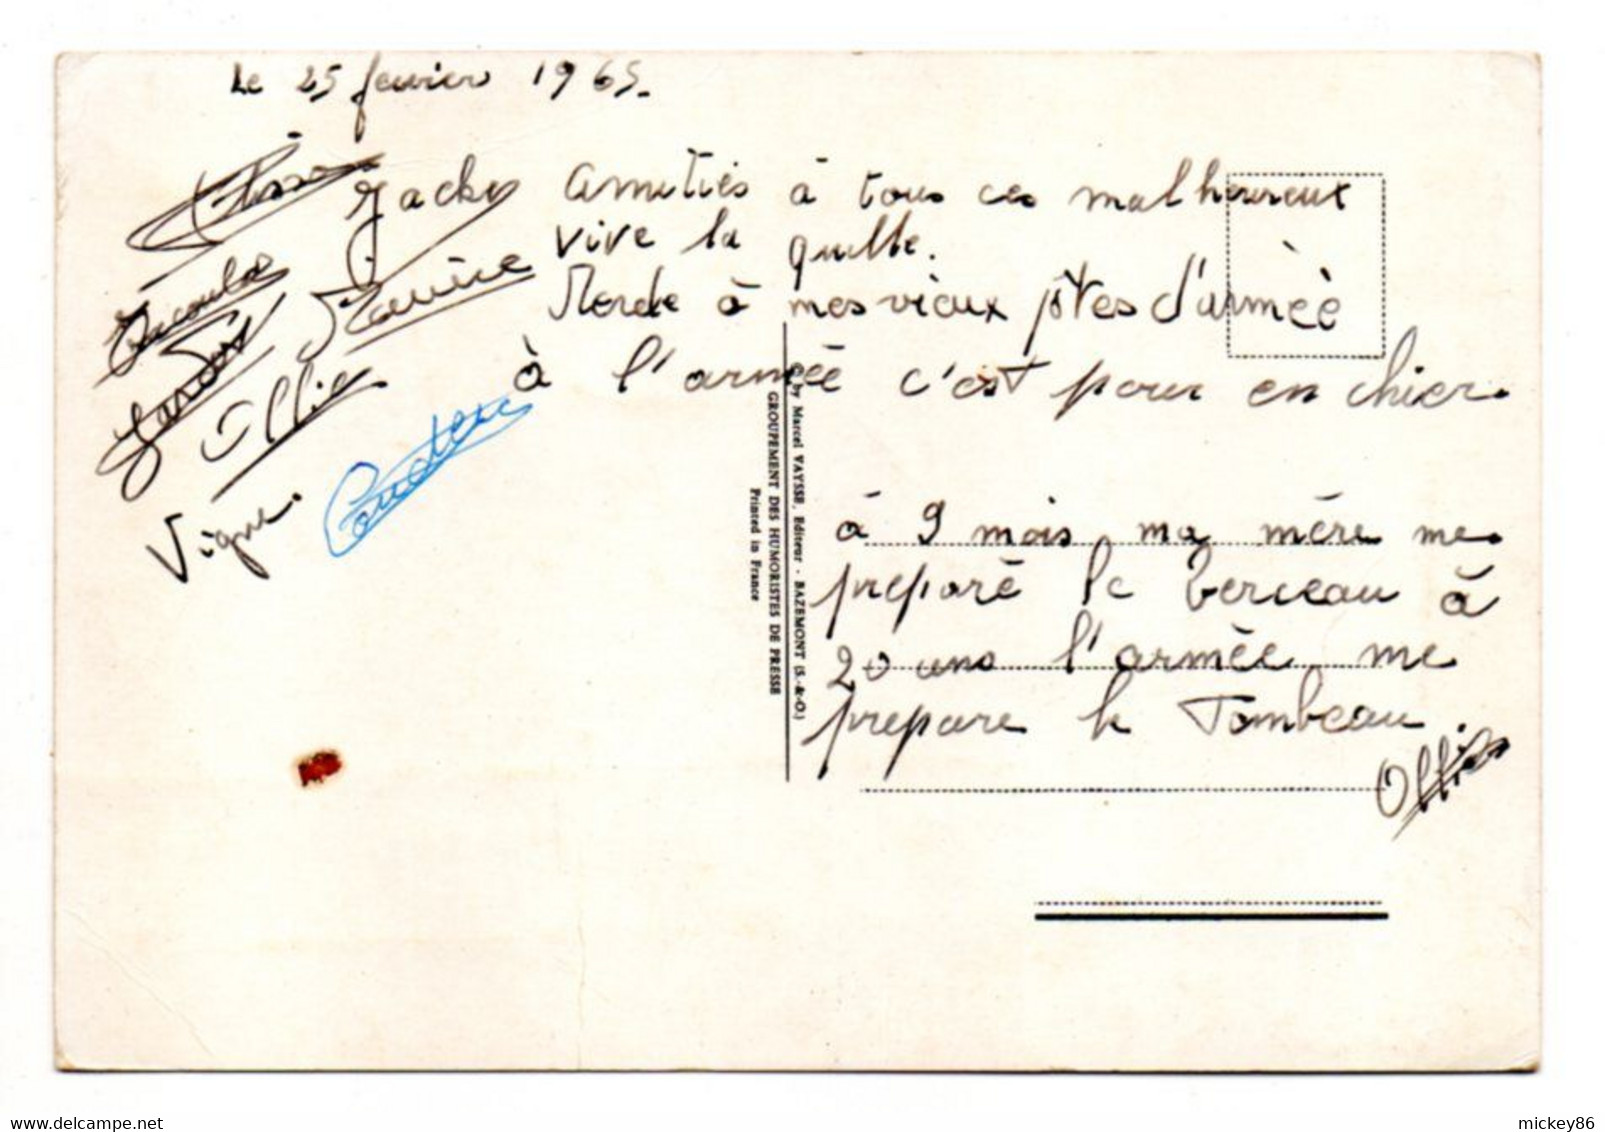 Le 25 fevrier 1965.
Jacky
Amitiés à tous ces malheureux
vive la quille.
Merde à mes vieux pôtes d'armèè
à l'armèè c'est pour en chier.
Ollier
Vigne.
à 9 mois ma mère me
preparè le berceau à
20 ans l'armèe me
prepare le Tombeau.
Ollier
© by Marcel VAYSSE, Editeur - BAZEMONT (S.-&-O.)
GROUPEMENT DES HUMORISTES DE PRESSE
Printed in France
mickey86